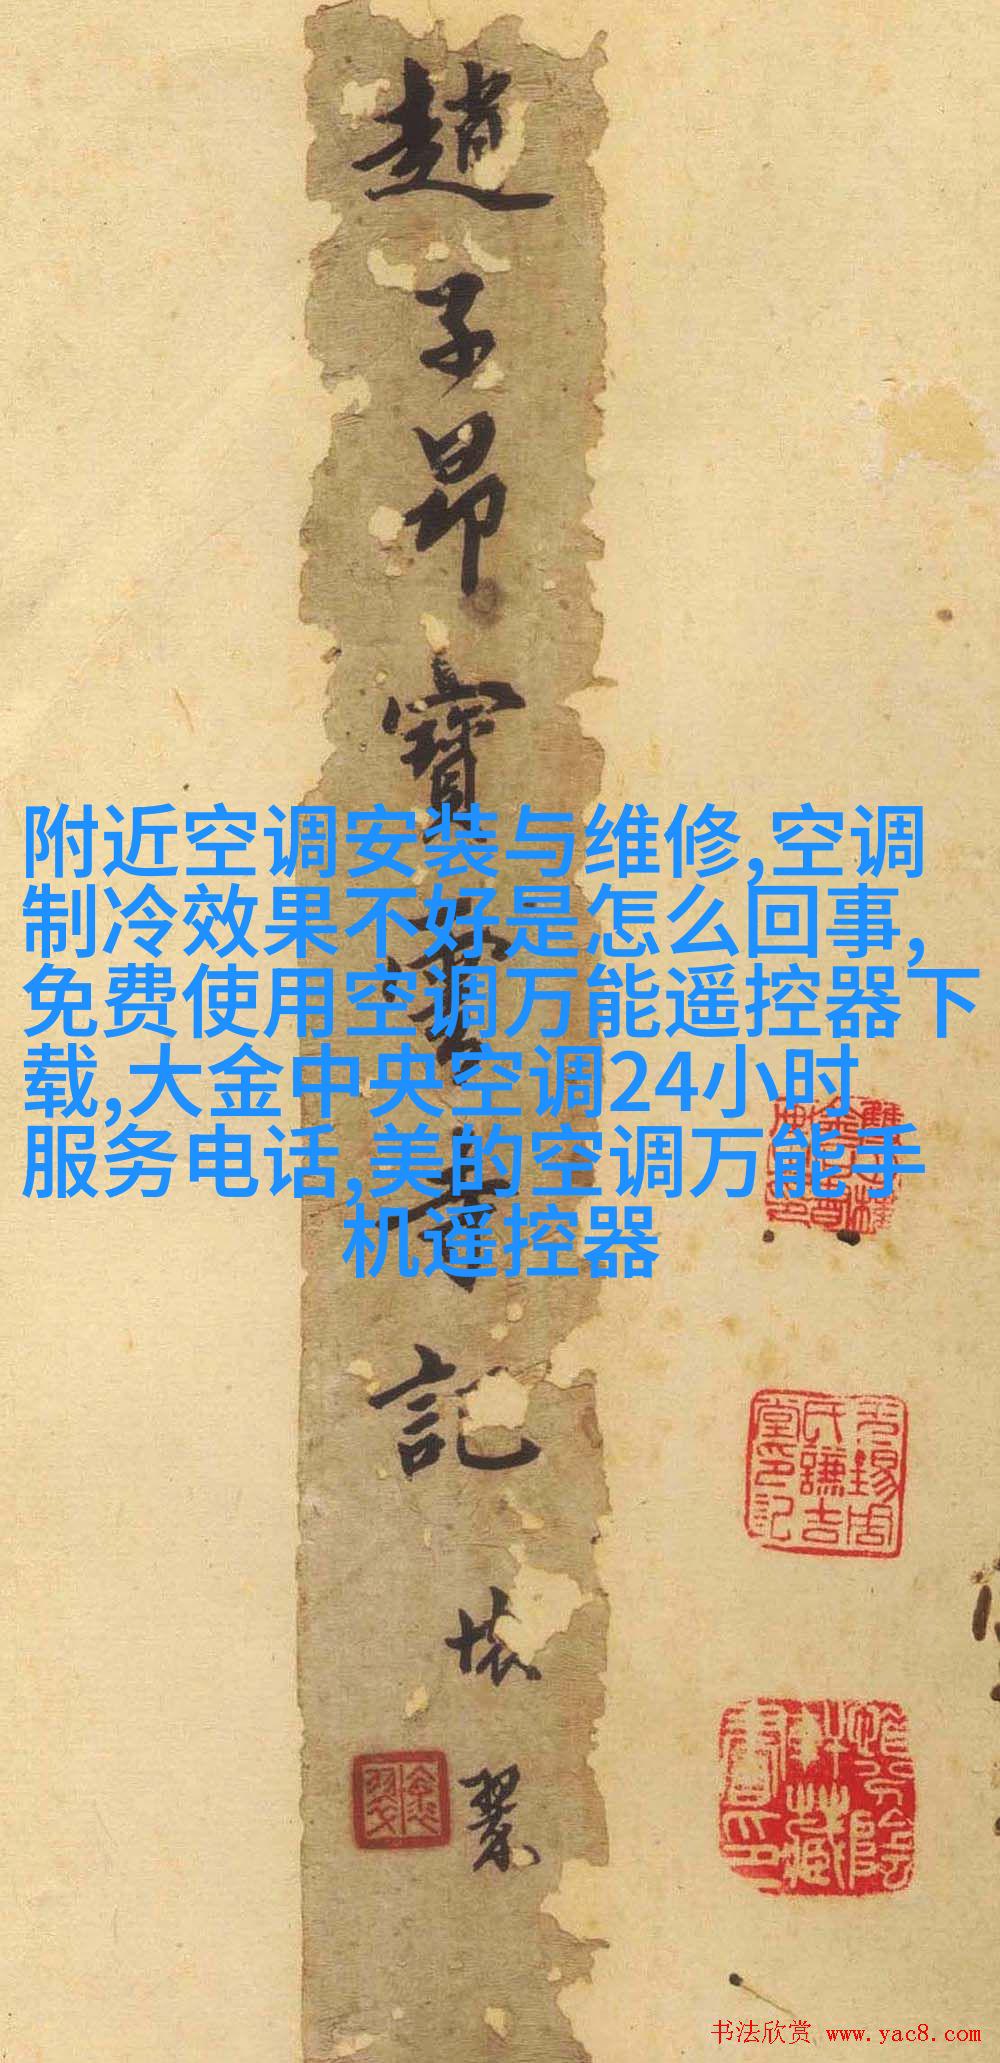 趙子昂寶雲寺記
附近空调安装与维修,空调
制冷效果不好是怎么回事,
免费使用空调万能遥控器下
载,大金中央空调24小时
服务电话,美的空调万能手
机遥控器
無錫周
氏謙吉
堂印記
书法欣赏 www.yac8.com